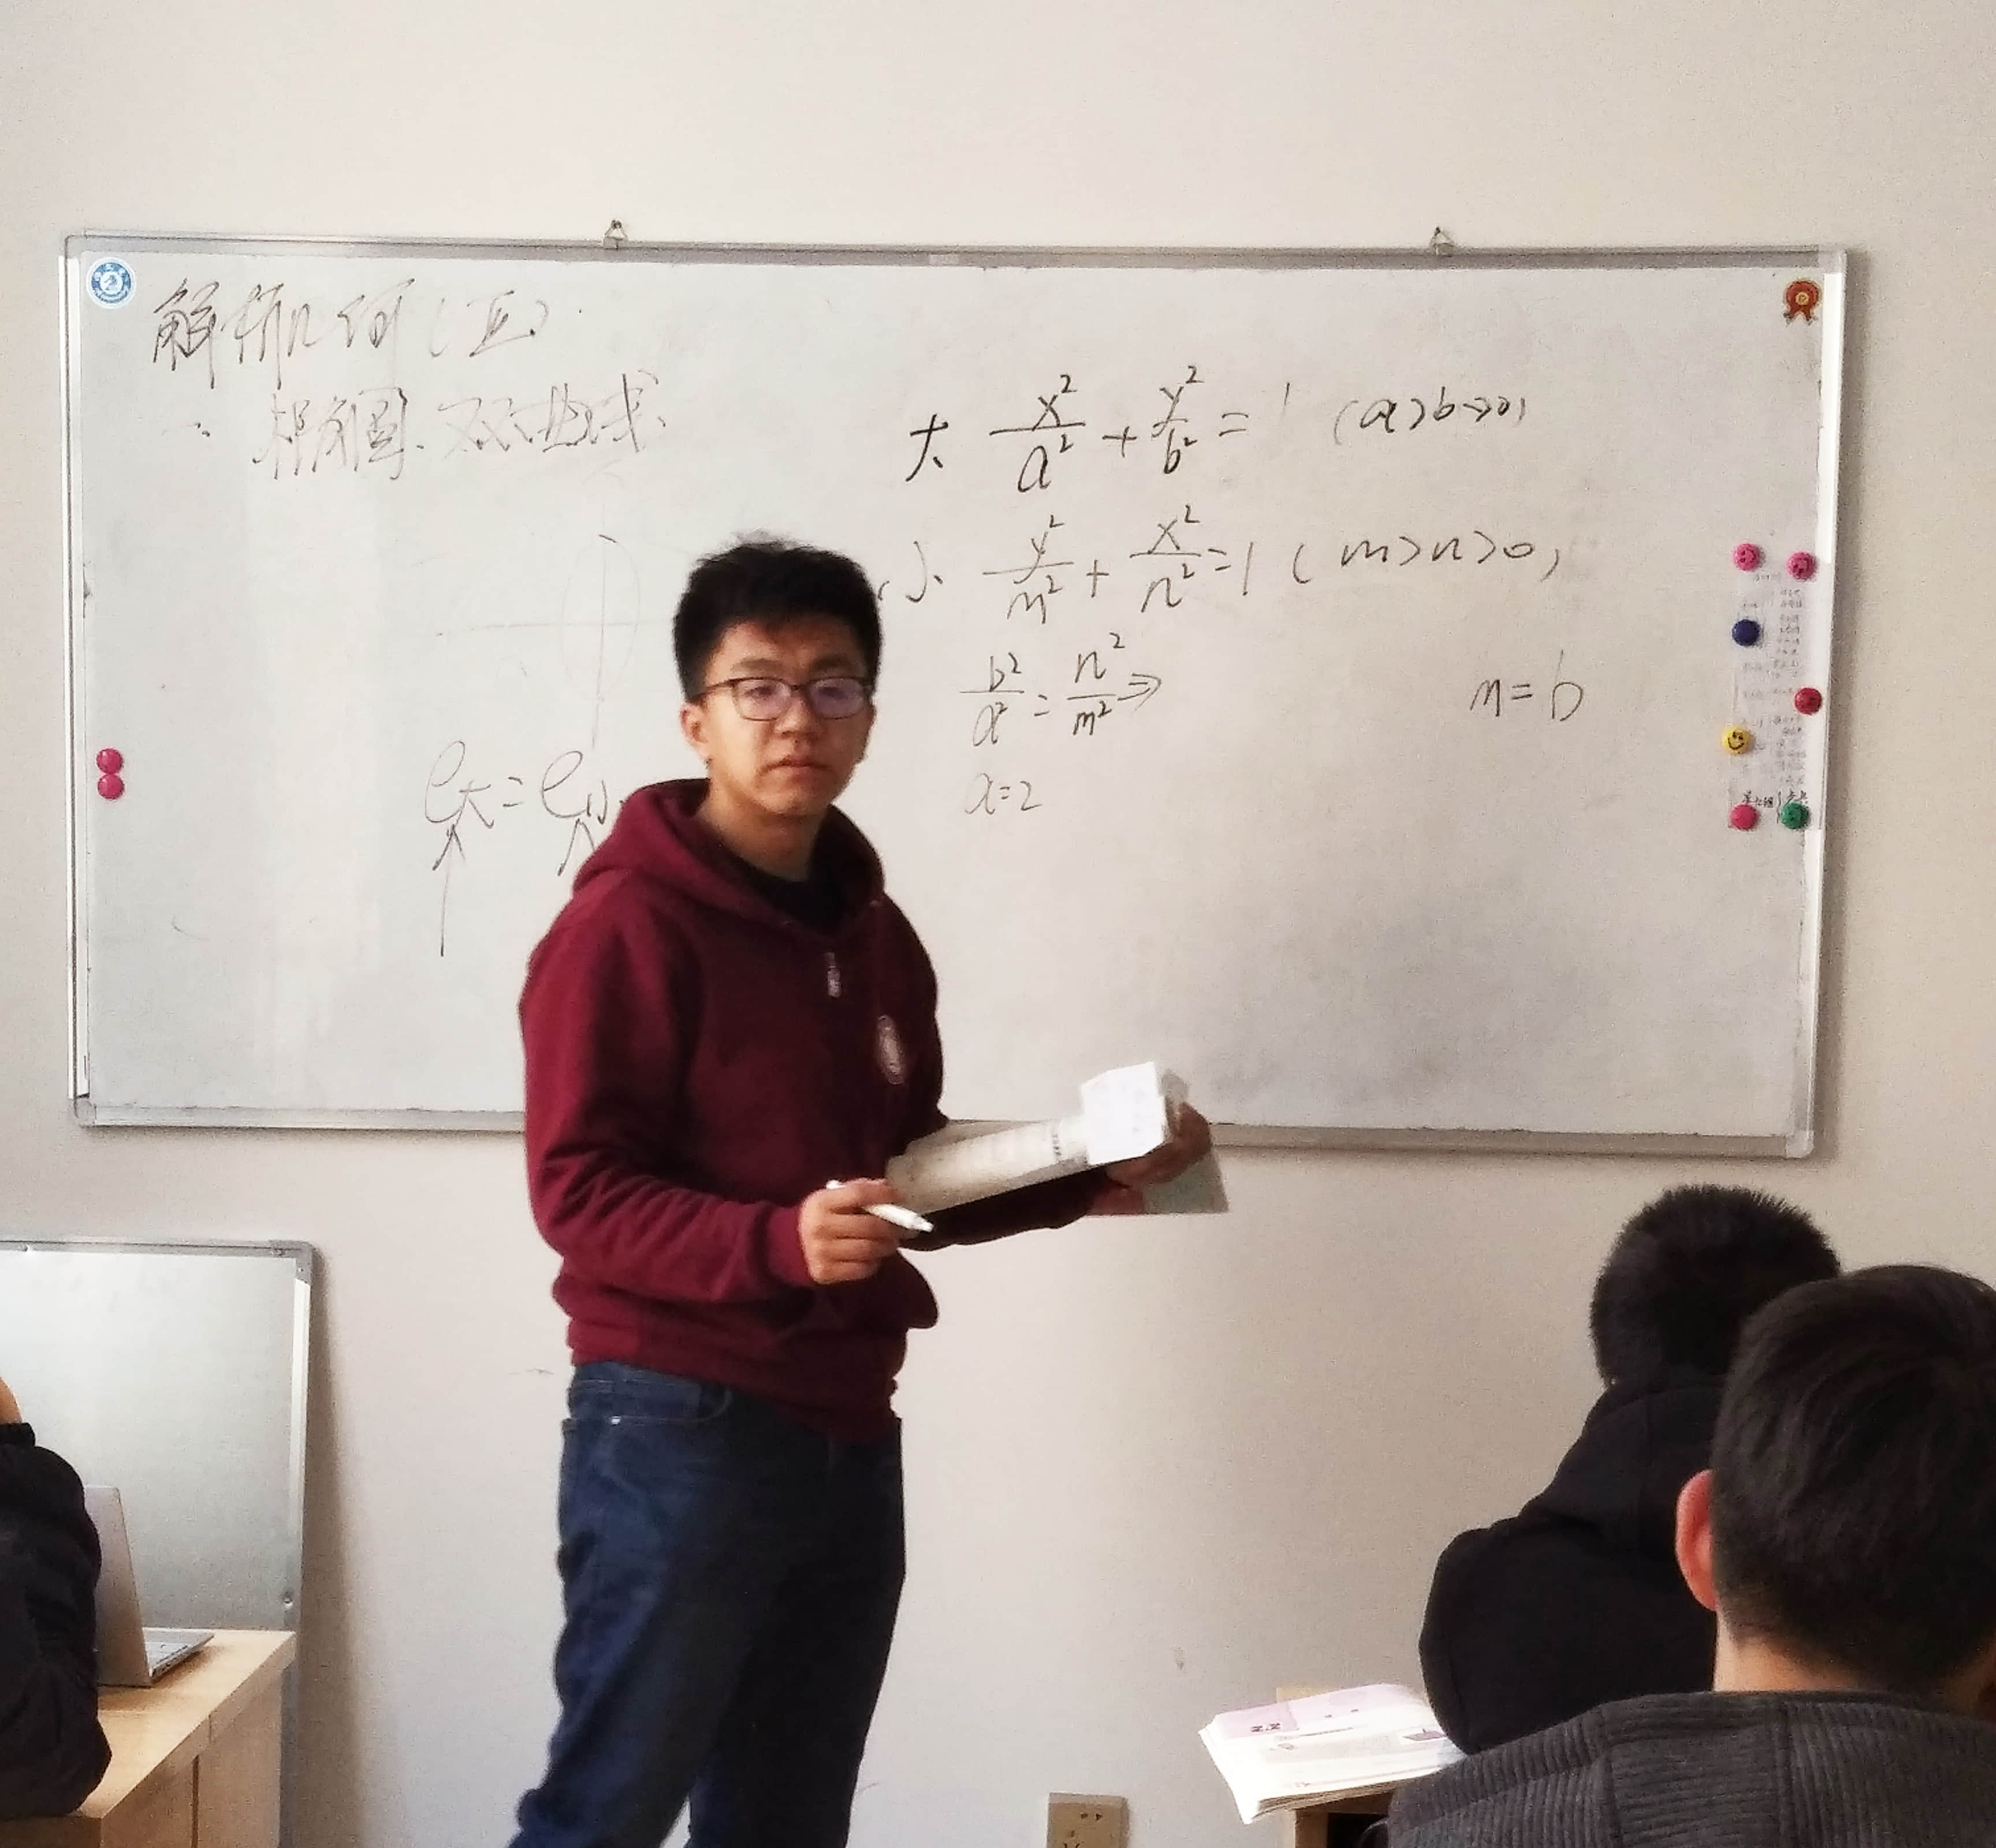 解析几何(五)
一. 椭圆.双曲线
大 x²/a² + y²/b² = 1 (a>b>0)
小 y²/m² + x²/n² = 1 (m>n>0)
b²/a² = n²/m² ⇒ m=b
e大=e小
a=2